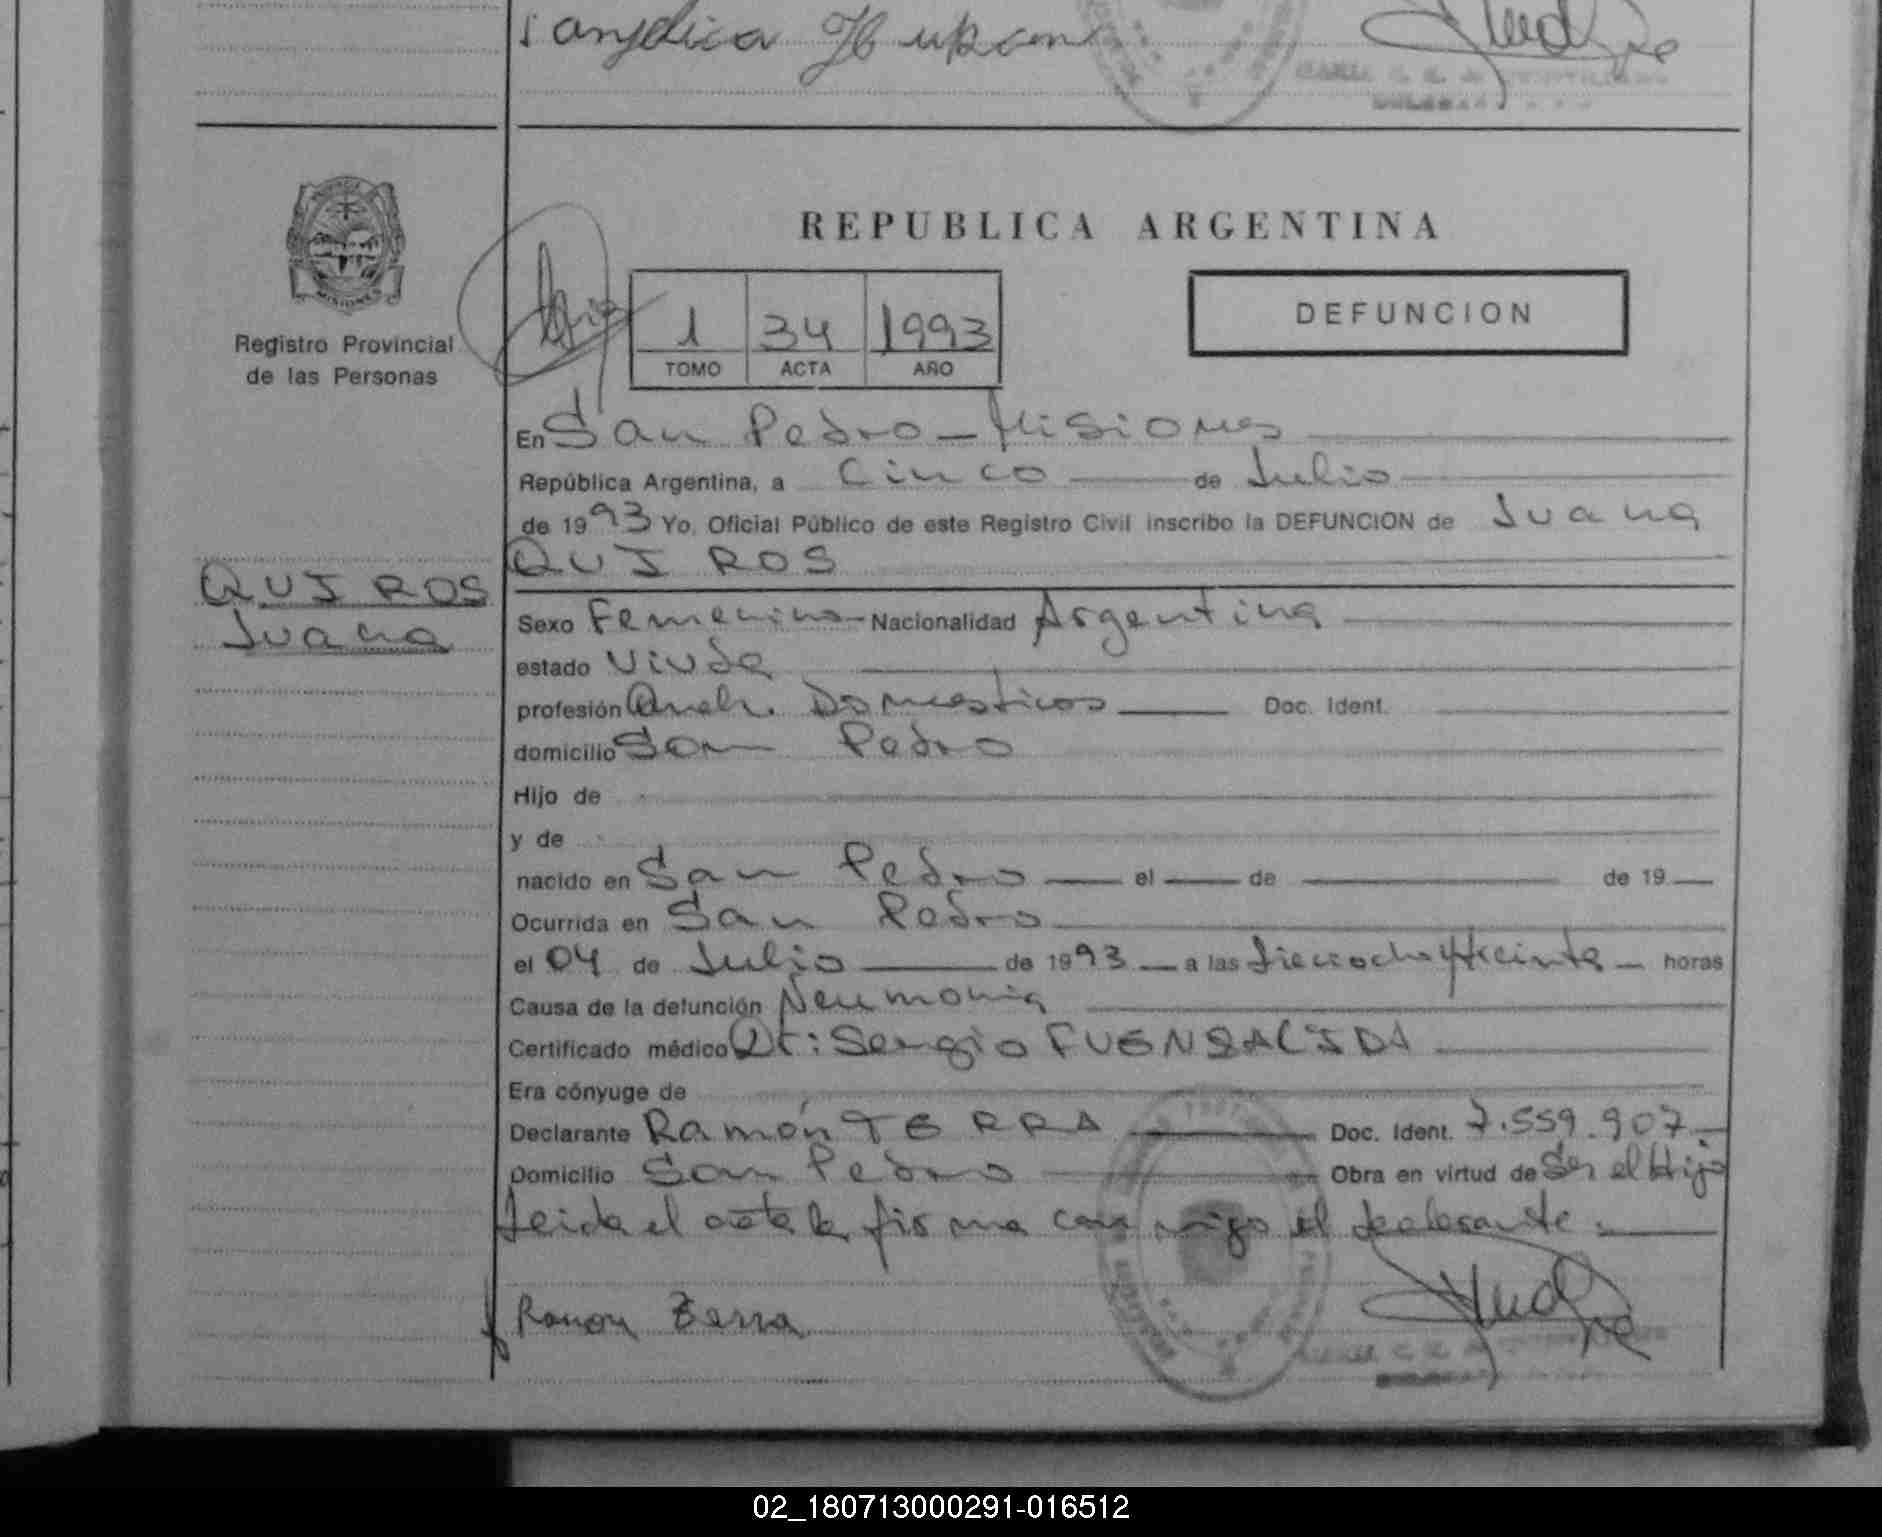 Registro Provincial
de las Personas
REPUBLICA ARGENTINA
1 34 1993
TOMO ACTA AÑO
DEFUNCION
En San Pedro - Misiones
República Argentina, a Cinco de Julio
de 1993 Yo, Oficial Público de este Registro Civil inscribo la DEFUNCION de Juana
QUIROS
QUIROS
Juana
Sexo Femenino - Nacionalidad Argentina
estado Viuda
profesión Domesticos Doc. Ident.
domicilio San Pedro
Hijo de
y de
nacido en San Pedro el de de 19
Ocurrida en San Pedro
el 04 de Julio de 1993 a las dieciocho y treinta horas
Causa de la defunción Neumonia
Certificado médico Dr: Sergio FUENSALIDA
Era cónyuge de
Declarante Ramón TERRA Doc. Ident. 7.559.907
Domicilio San Pedro Obra en virtud de Ser el Hijo
Leida el acta la firma con migo el declarante
Ramon Terra
02_180713000291-016512